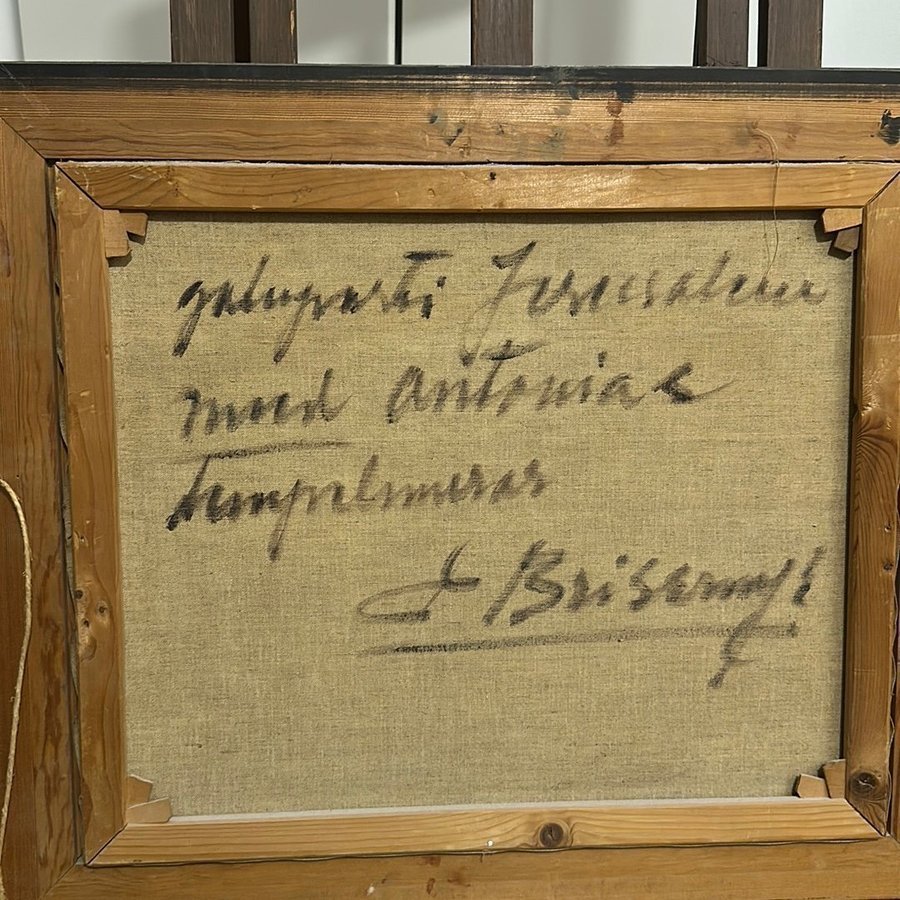 gatuparti Jerusalem
med Antoniae
tempelmurar